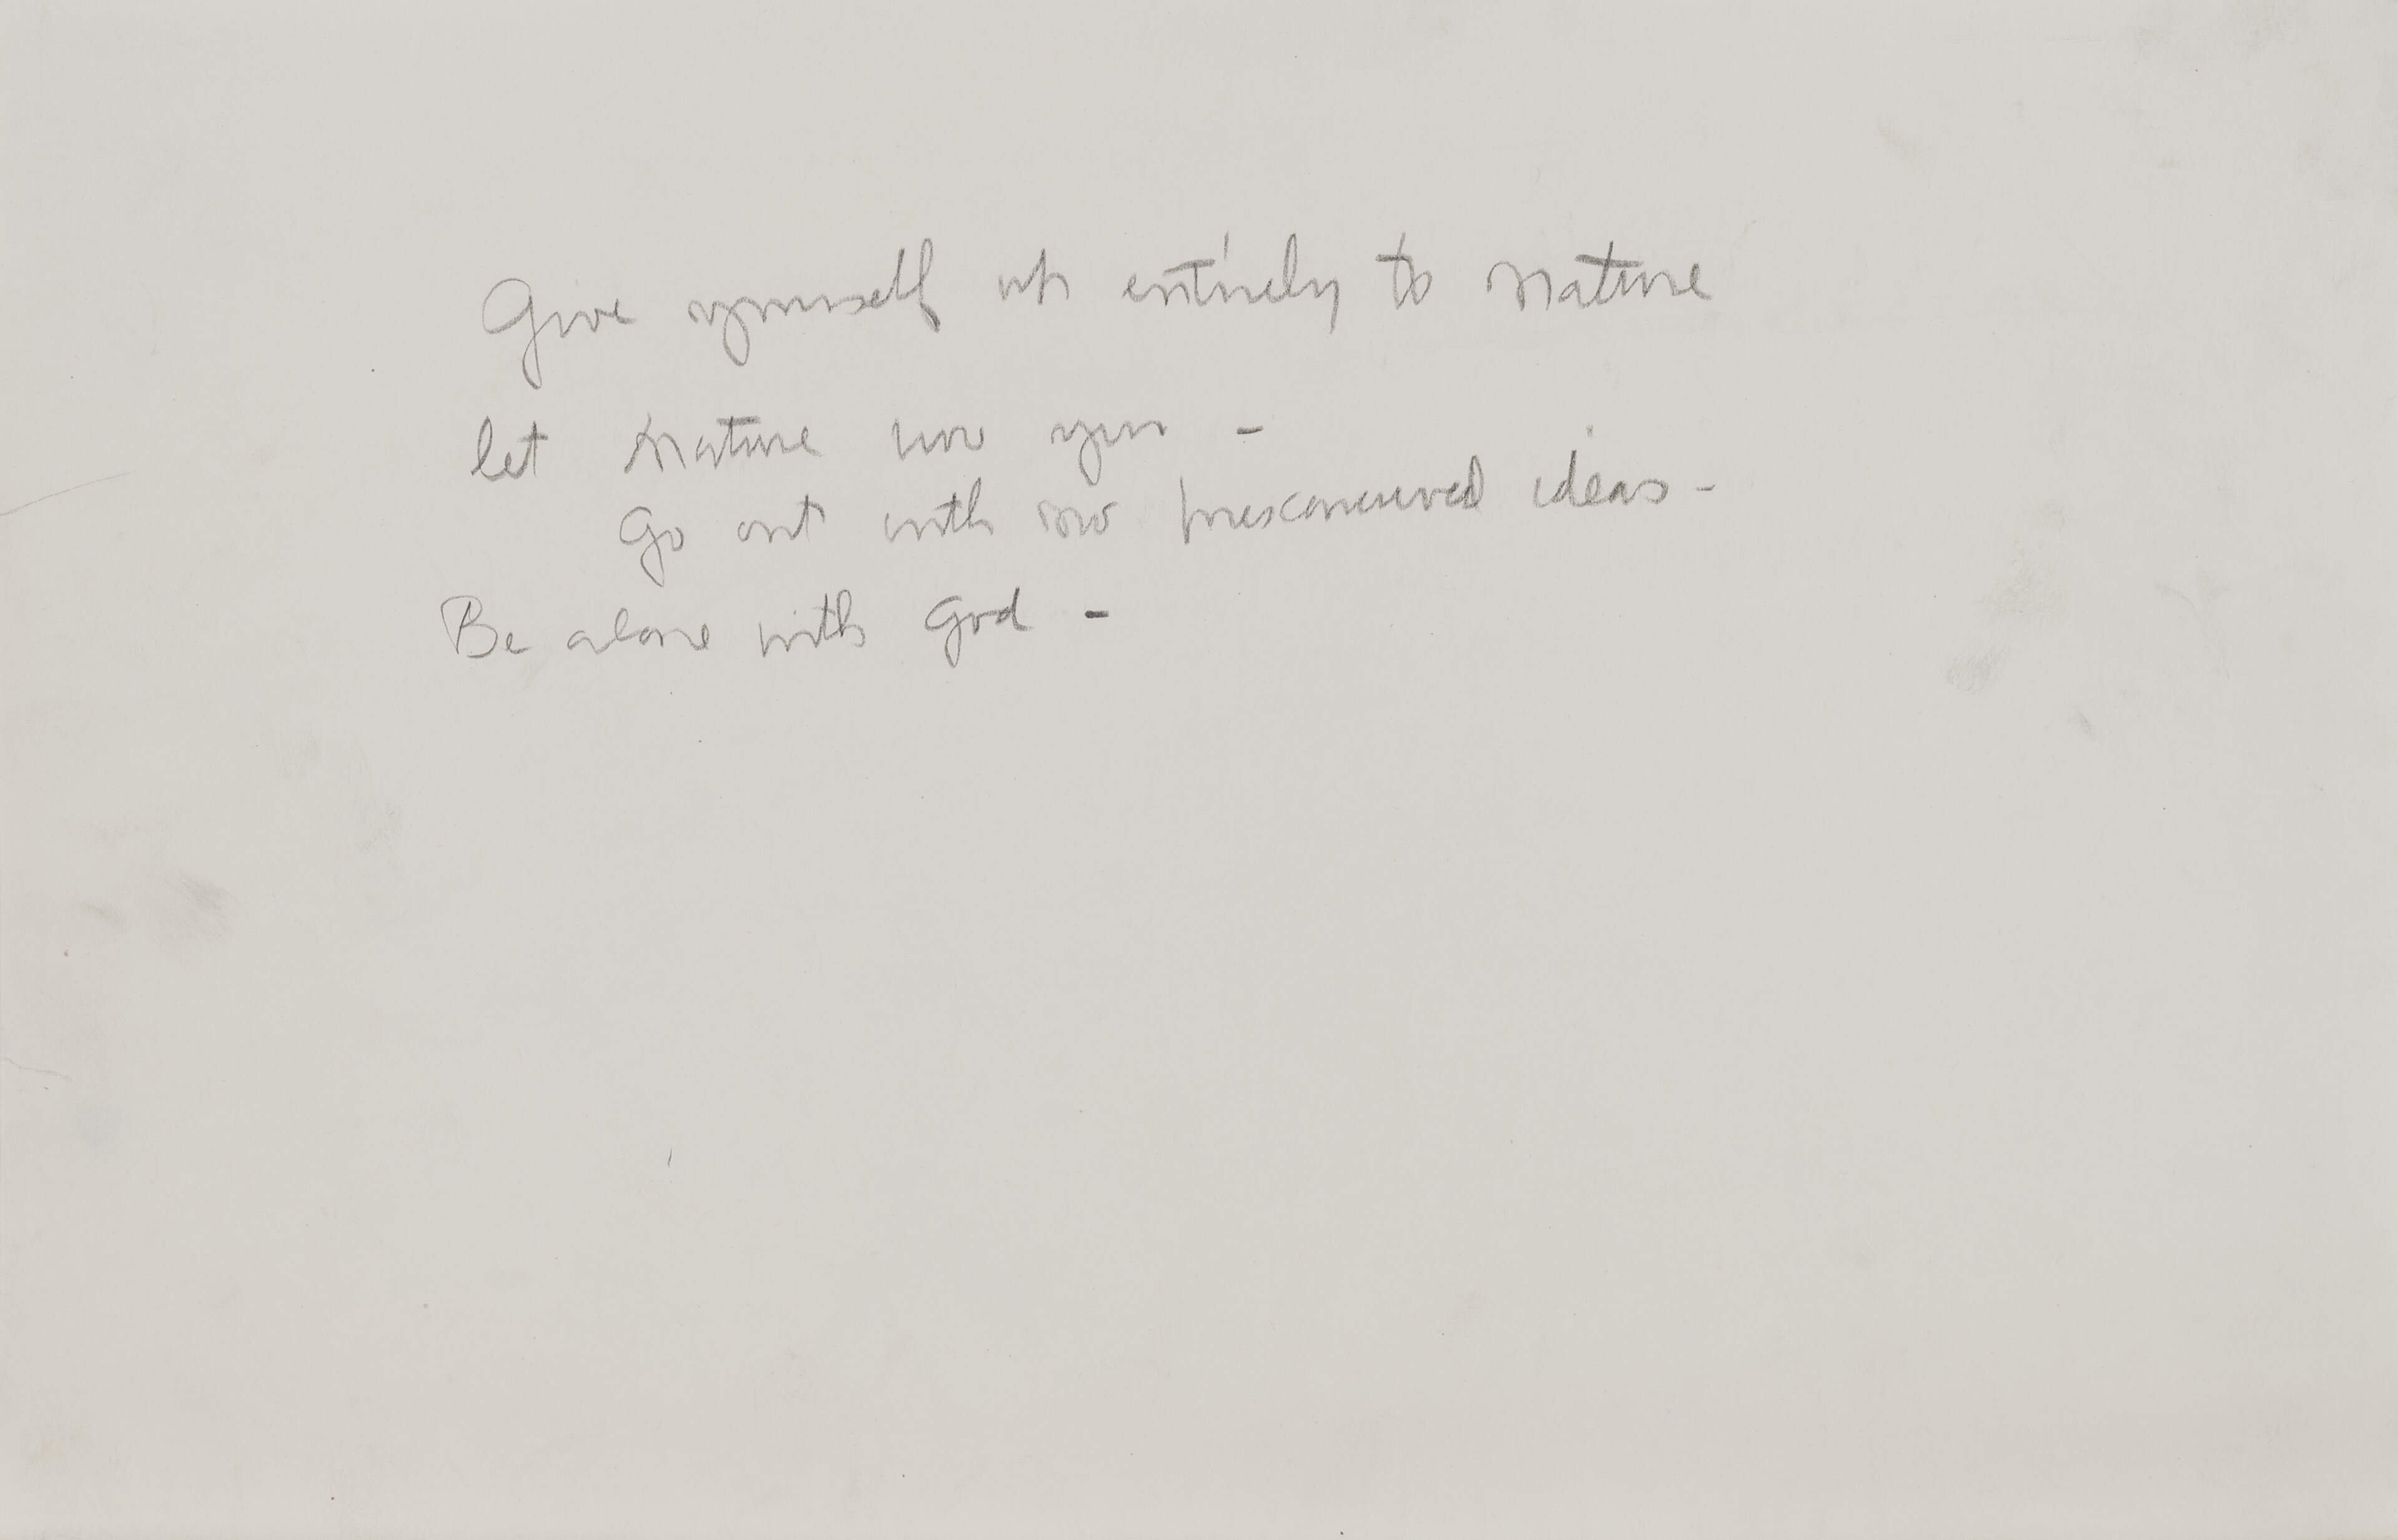 Give yourself up entirely to Nature
let Nature use you -
Go out with no preconceived ideas -
Be alone with God -